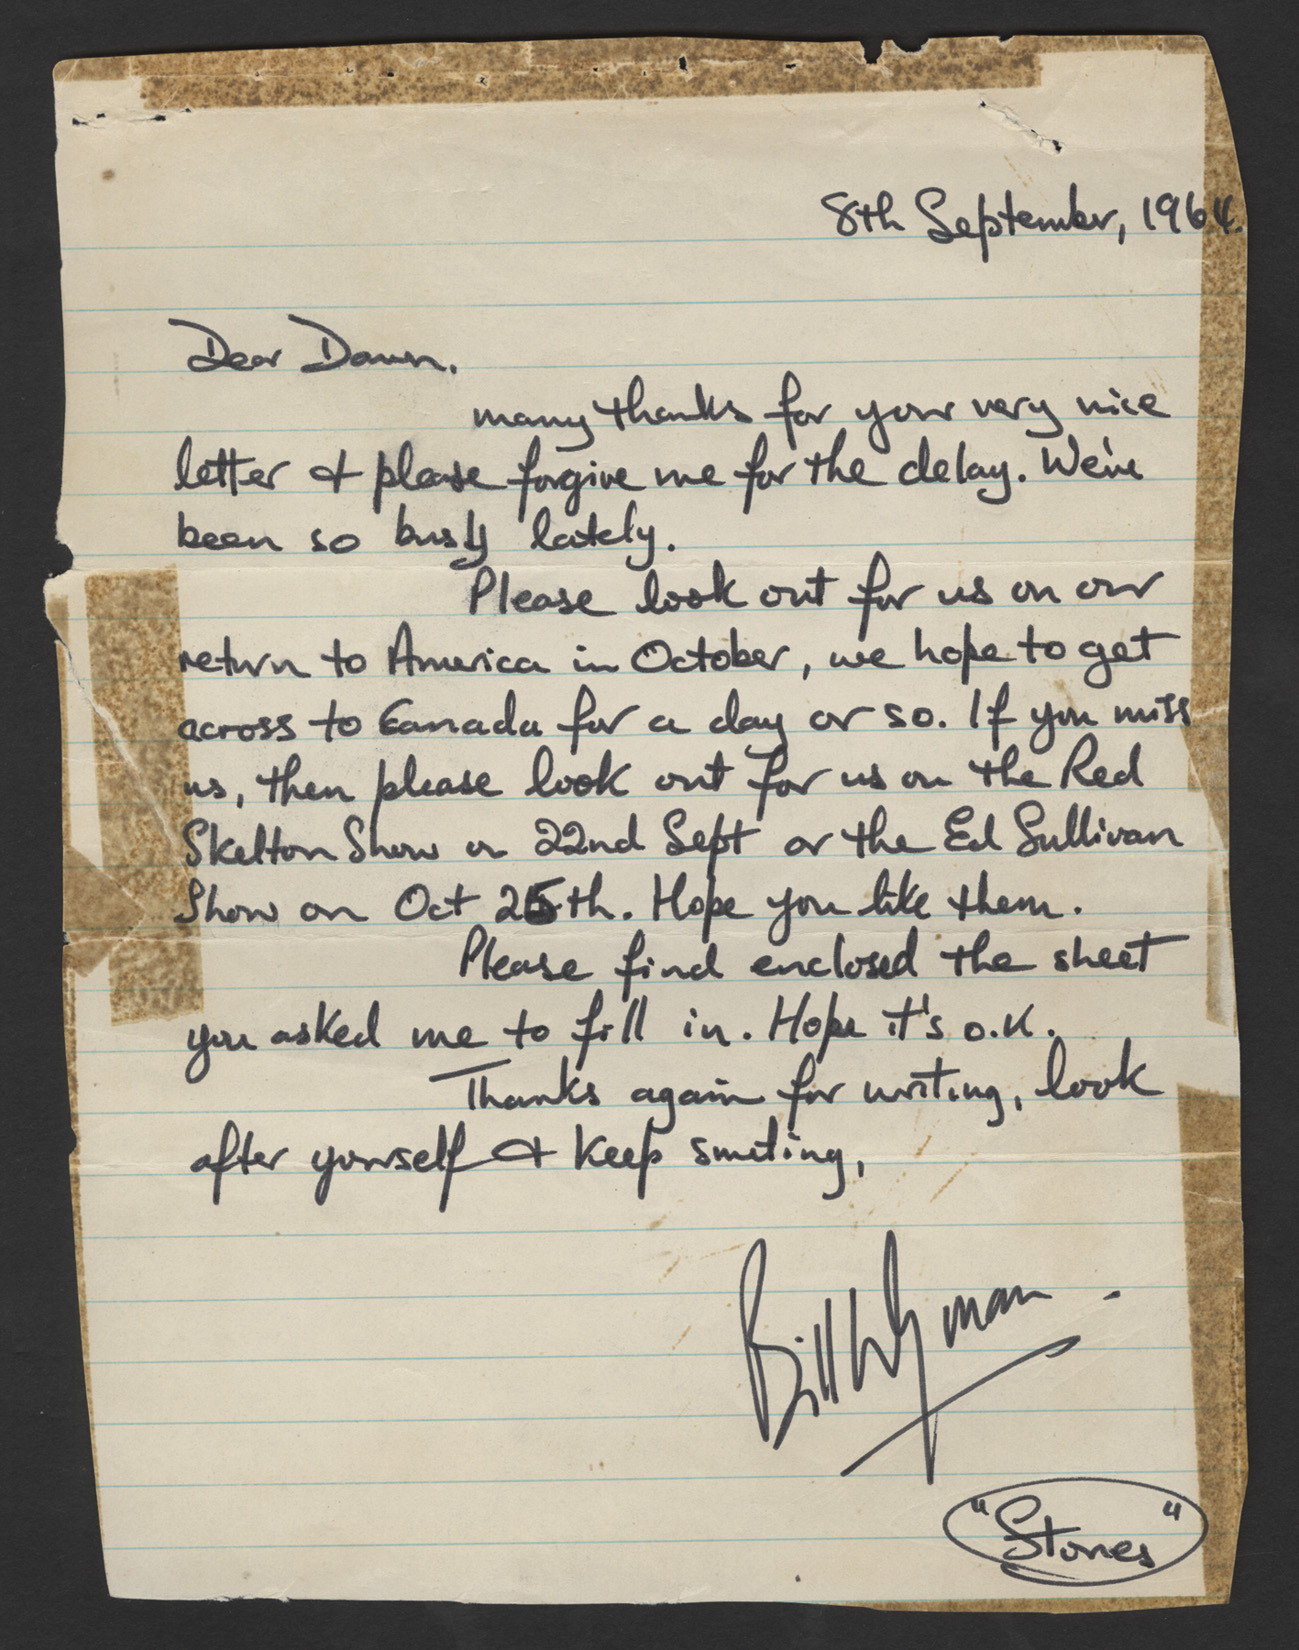 8th September, 1964.
Dear Dawn.
many thanks for your very nice
letter & please forgive me for the delay. We've
been so busy lately.
Please look out for us on our
return to America in October, we hope to get
across to Canada for a day or so. If you miss
us, then please look out for us on the Red
Skelton Show on 22nd Sept or the Ed Sullivan
Show on Oct 25th. Hope you like them.
Please find enclosed the sheet
you asked me to fill in. Hope it's o.k.
Thanks again for writing, look
after yourself & keep smiling,
Bill Wyman -
"Stones"